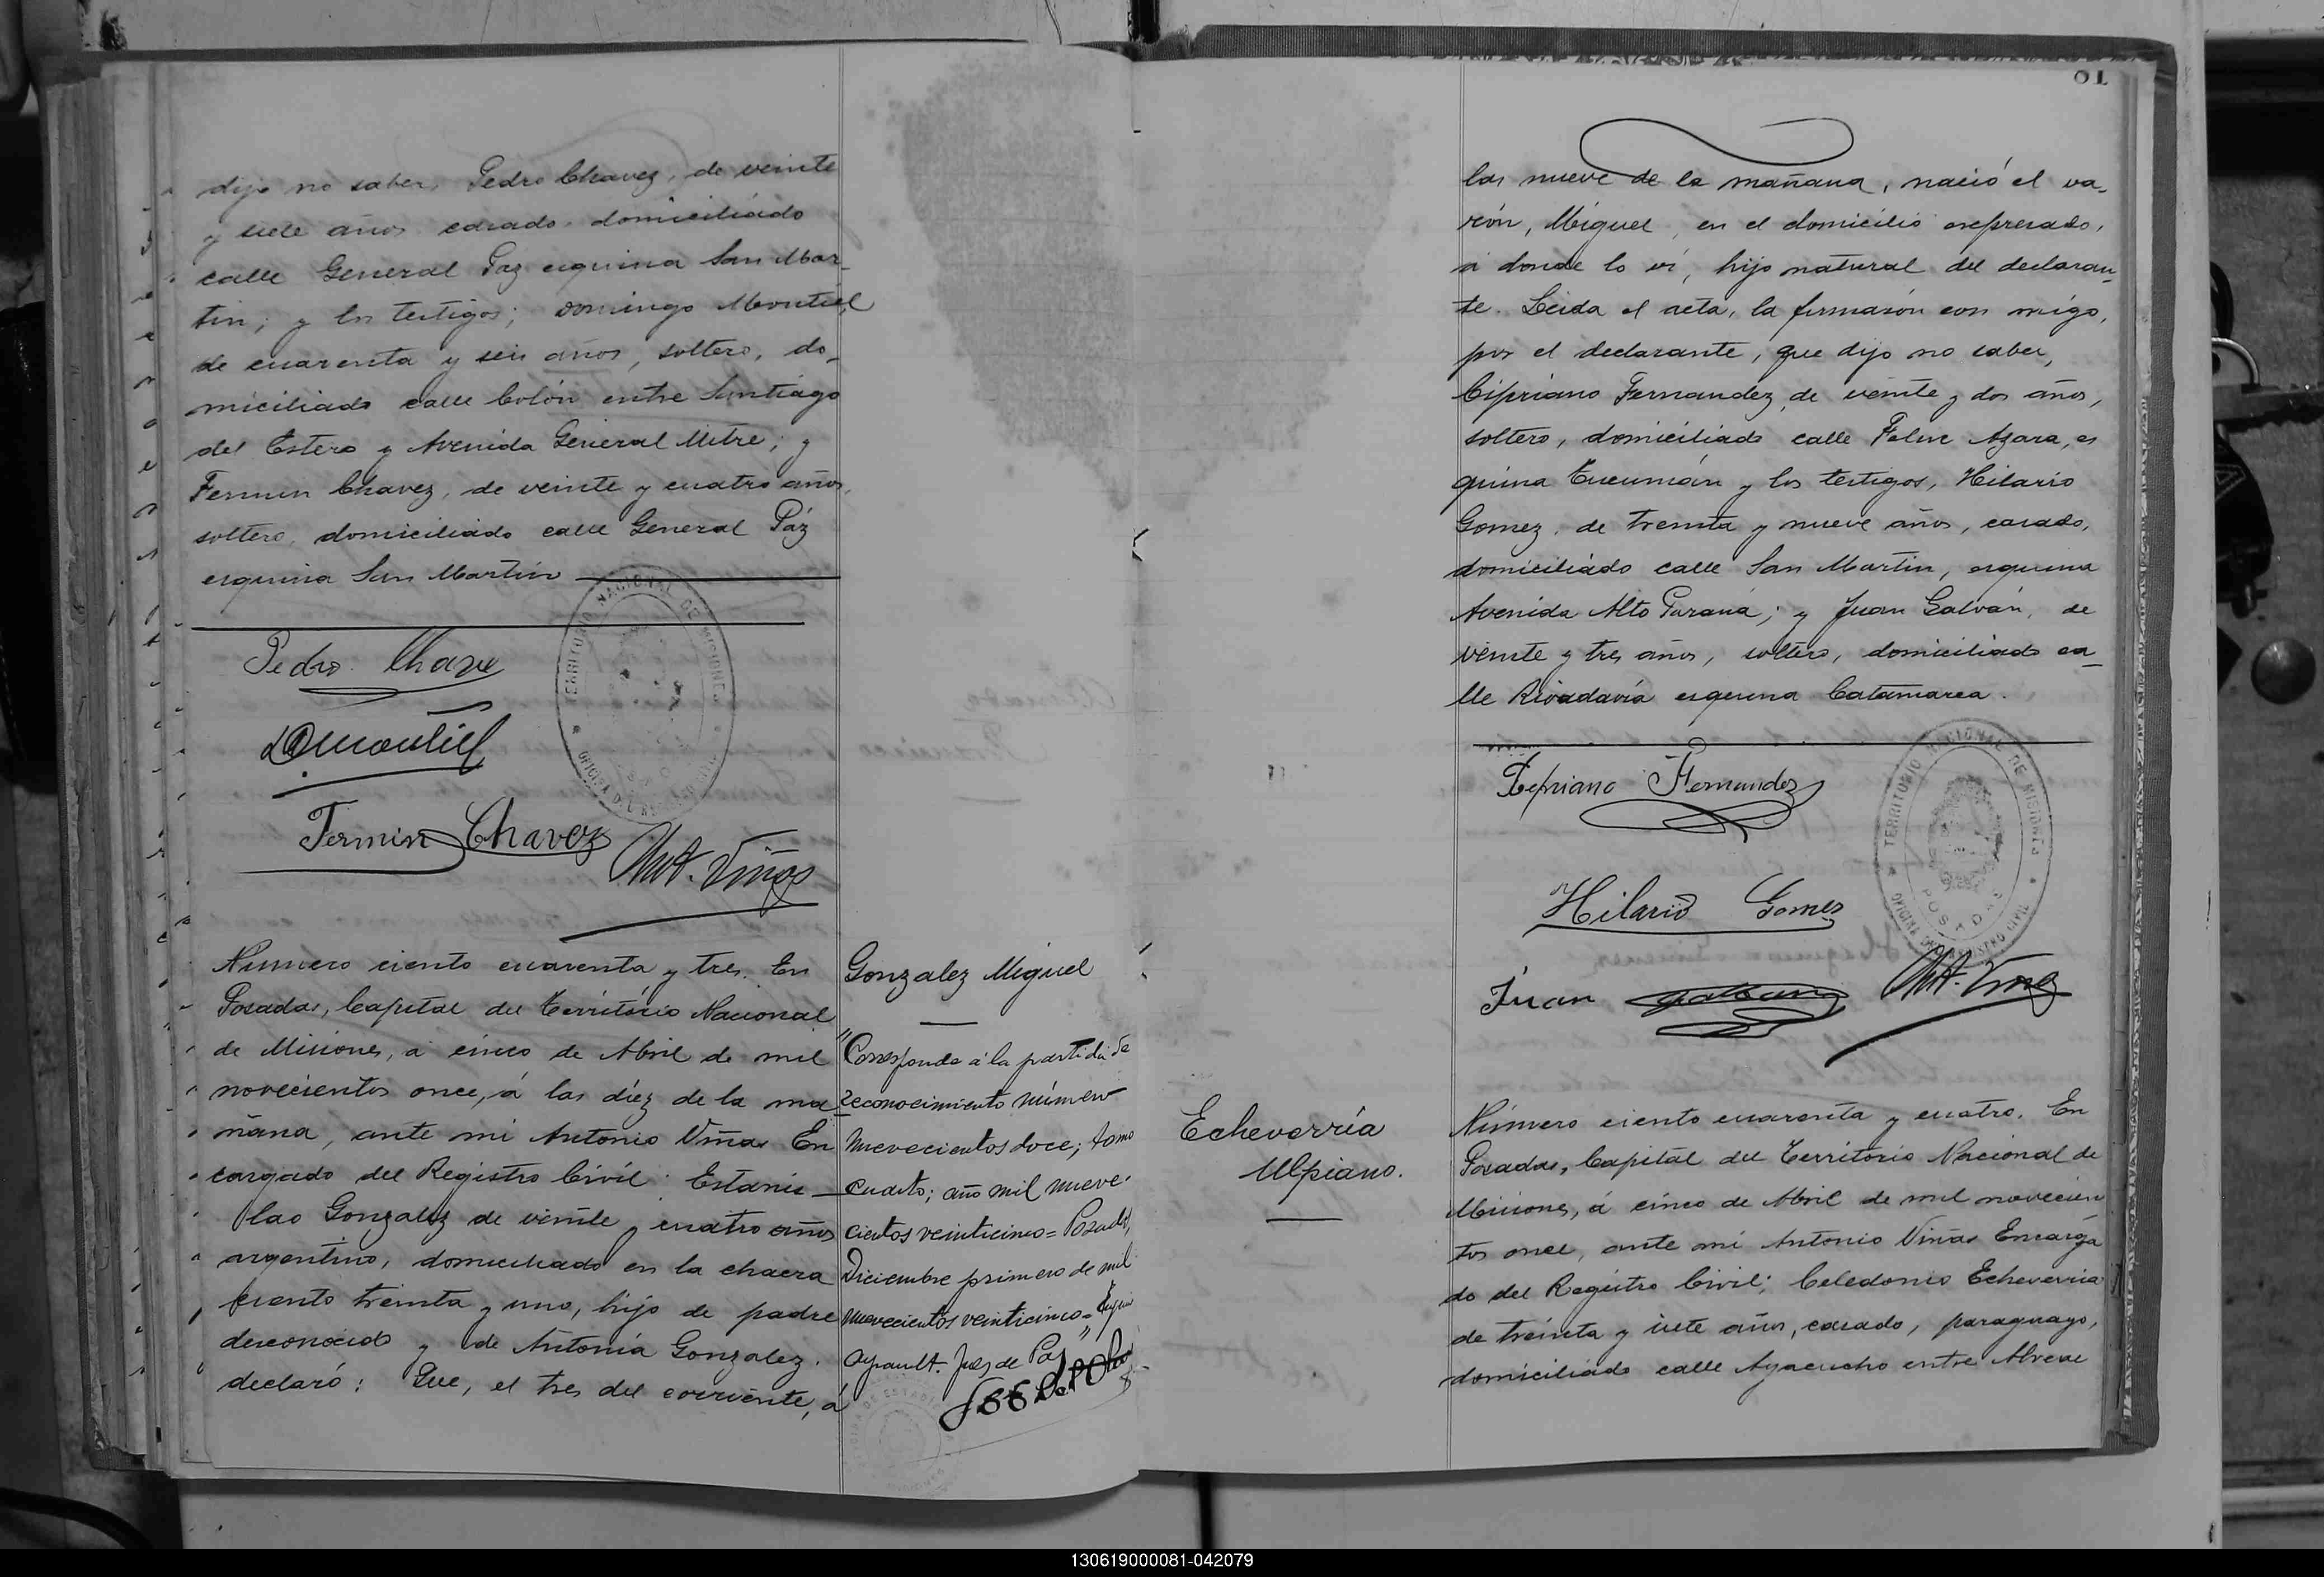 dijo no saber, Pedro Chavez, de veinte
y siete años casado, domiciliado
calle General Paz esquina San Mar-
tin; y los testigos; Domingo Montiel,
de cuarenta y seis años, soltero, do-
miciliado calle Colón entre Santiago
del Estero y Avenida General Mitre; y
Fermin Chavez, de veinte y cuatro años,
soltero, domiciliado calle General Páz
esquina San Martin
TERRITORIO NACIONAL DE MISIONES
Pedro Chave
DMontiel
Fermin Chavez
Ant. Viñas
Número ciento cuarenta y tres. En
Posadas, Capital del Território Nacional
de Misiones, á cinco de Abril de mil
novecientos once, á las diéz de la ma
ñana, ante mi Antonio Viñas En
cargado del Registro Civil: Estanis-
lao Gonzalez de veinte y cuatro años
argentino, domiciliado en la chacra
ciento treinta y uno, hijo de padre
desconocido y de Antonia Gonzalez.
declaró: Que, el tres del corriente, á
Gonzalez Miguel
"Corresponde á la partida de
reconocimiento número
nuevecientos doce; tomo
cuarto; año mil nueve-
cientos veinticinco = Posadas,
Diciembre primero de mil
nuevecientos veinticinco =
Ayrault. Juez de Paz"
81
las nueve de la mañana, nació el va-
rón, Miguel, en el domicilio expresado,
á donde lo ví, hijo natural del declaran-
te. Leida el acta, la firmarón con migo,
por el declarante, que dijo no saber,
Cipriano Fernandez, de veinte y dos años,
soltero, domiciliado calle Felix Azara, es
quina Tucumán y los testigos, Hilario
Gomez, de treinta y nueve años, casado,
domiciliado calle San Martin, esquina
Avenida Alto Paraná; y Juan Galván, de
veinte y tres años, soltero, domiciliado ca-
lle Rivadavía esquina Catamarca.
TERRITORIO NACIONAL DE MISIONES
POSADAS
OFICINA DEL REGISTRO CIVIL
Cipriano Fernandez
Hilario Gomez
Juan Galban
Ant. Viñas
Echeverría
Ulpiano.
Número ciento cuarenta y cuatro. En
Posadas, Capital del Territorio Nacional de
Misiones, á cinco de Abril de mil novecien
tos once, ante mi Antonio Viñas Encarga
do del Registro Civil; Celedonio Echeverria
de treinta y siete años, casado, paraguayo,
domiciliado calle Ayacucho entre Alvear
130619000081-042079